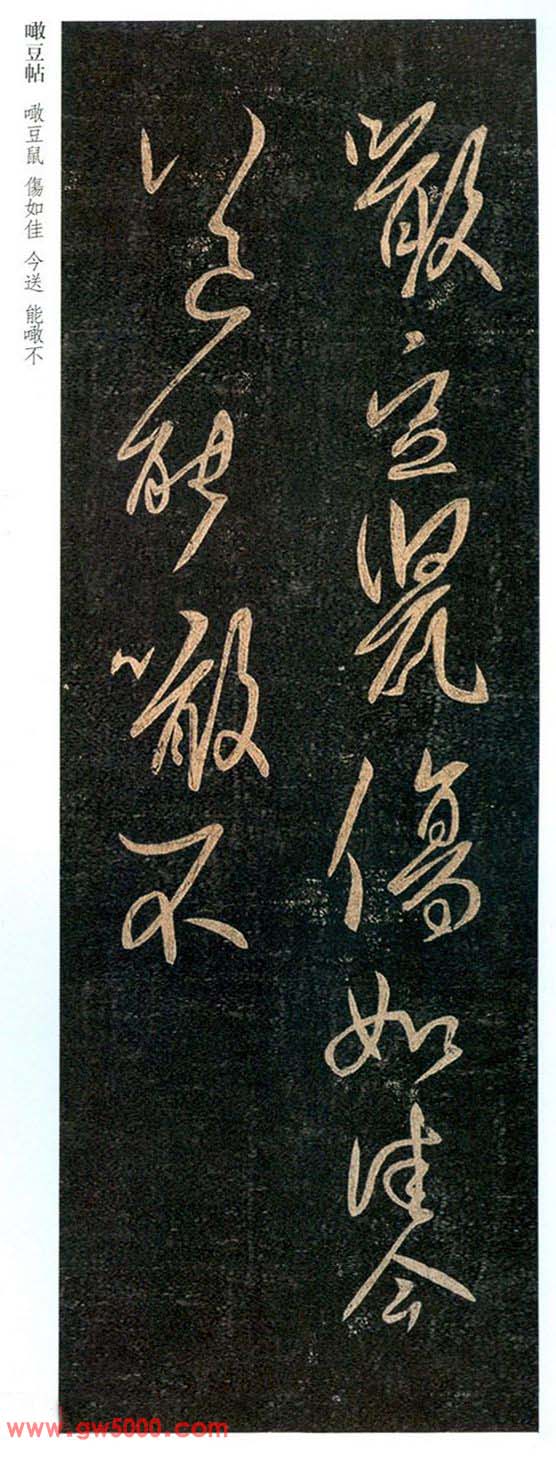 噉豆鼠傷如佳今
送能噉不
噉豆帖 噉豆鼠 傷如佳 今送 能噉不
www.gw5000.com